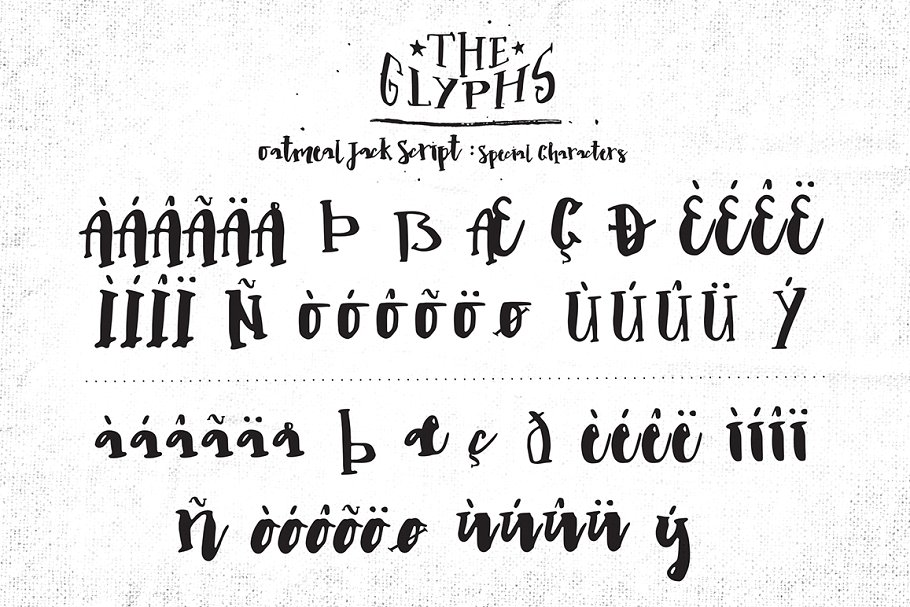 THE
GLYPHS
oatmeal Jack Script : Special Characters
ÀÁÂÃÄÅ Þ ß Æ Ç Ð ÈÉÊË
ÌÍÎÏ Ñ ÒÓÔÕÖØ ÙÚÛÜ Ý
àáâãäå þ æ ç ð èéêë ìíîï
ñ òóôõöø ùúûü ý